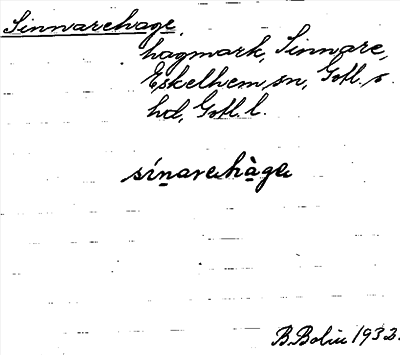 Sinnarehage,
hagmark, Sinnare,
Eskelhem sn, Gotl. s.
hd, Gotl. l.
sínarehàge
B. Bolin 1932.